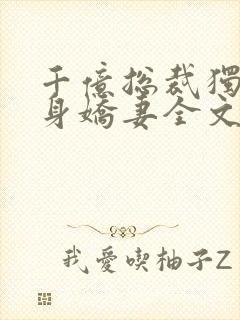 千億總裁獨
身嬌妻全文
我愛喫柚子Z